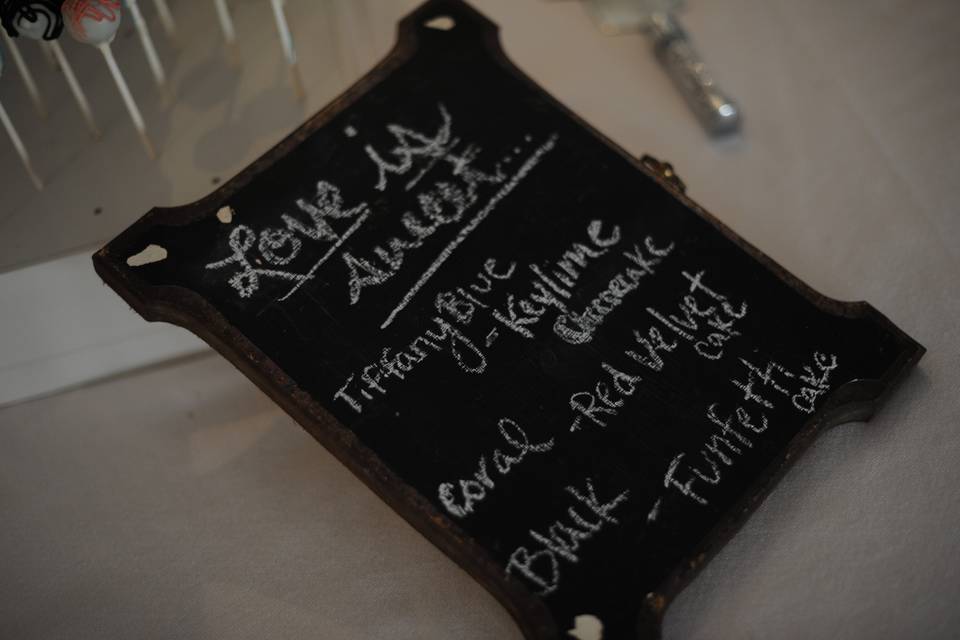 Love is
Sweet....
Tiffany Blue
- Keylime
Cheesecake
Coral - Red Velvet
cake
Black - Funfetti
cake